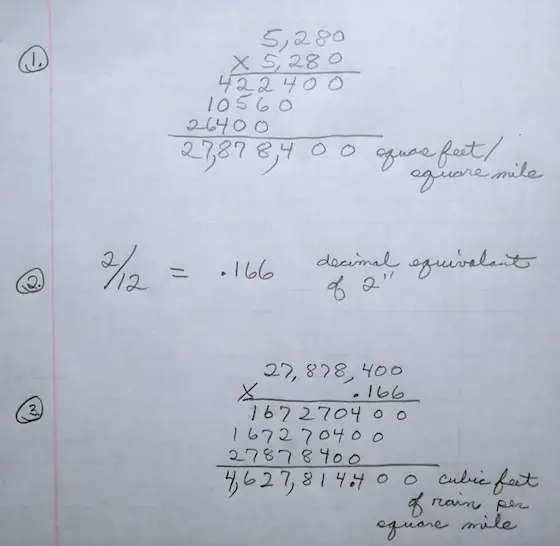 1.
5,280
X 5,280
422400
10560
26400
27,878,400 square feet/
square mile
2.
2/12 = .166 decimal equivalant
of 2"
3.
27,878,400
X .166
167270400
167270400
27878400
4,627,814.400 cubic feet
of rain per
square mile